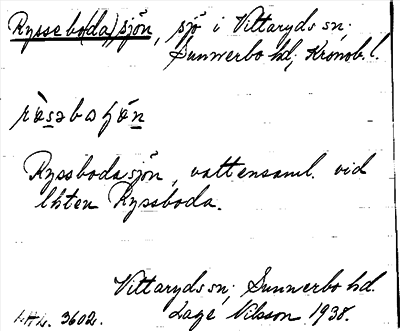 Rysseb(oda)sjön, sjö i Vittaryds sn;
Sunnerbo hd; Kronob. l.
Ryssbodasjön, vattensaml. vid
lhten Ryssboda.
Vittaryds sn; Sunnerbo hd.
3602. Lage Nilson 1938.